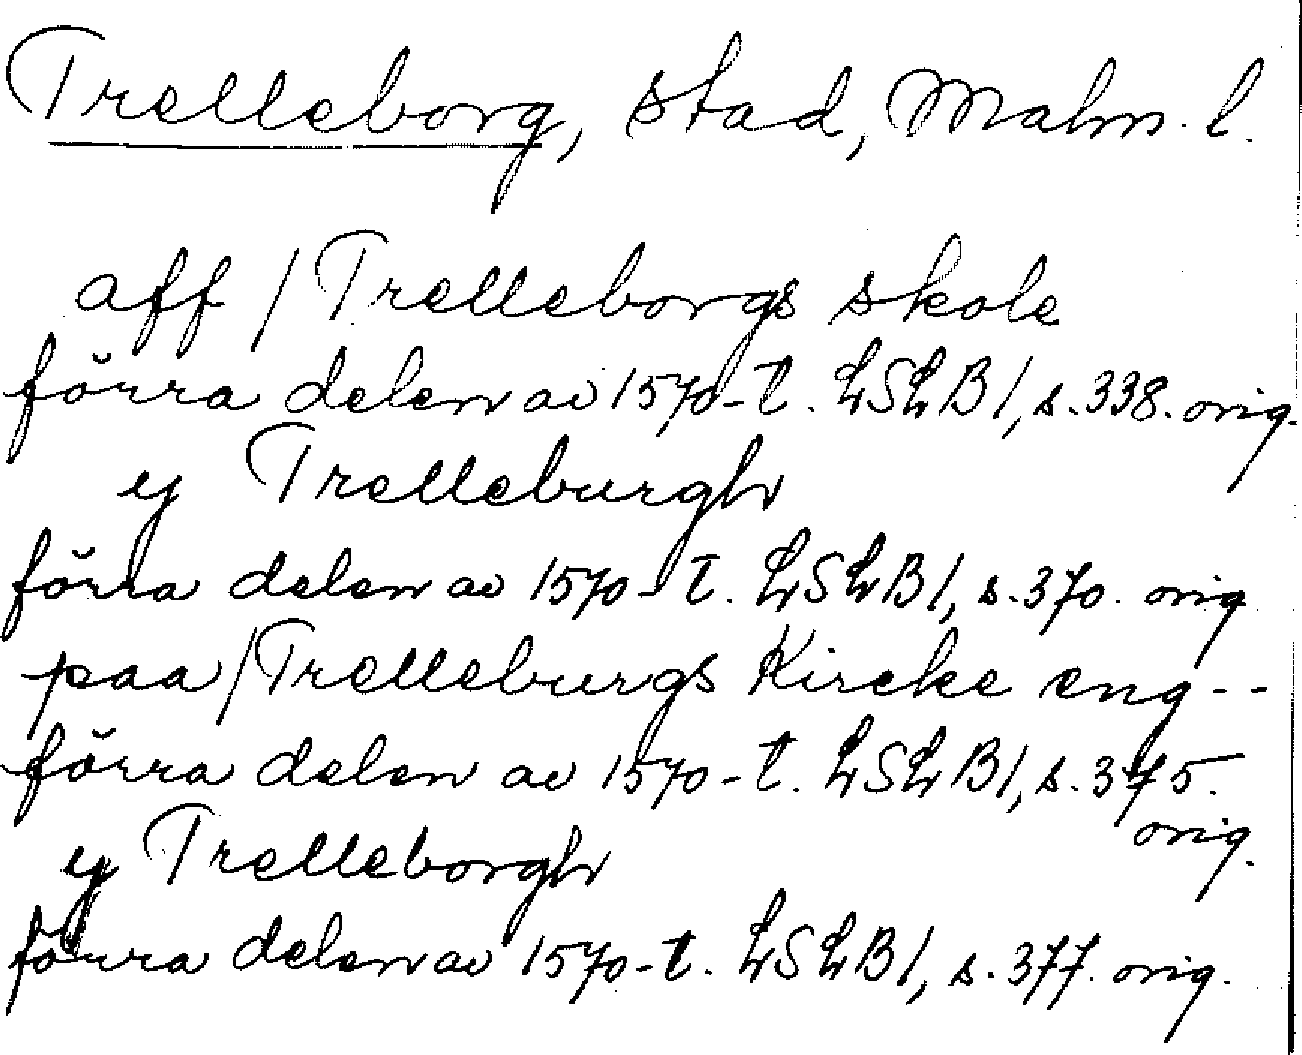 Trelleborg, stad, Malm. l.
aff / Trelleborgs skole
förra delen av 1570-t. LSLB 1, s. 338. orig.
y Trelleburgh
förra delen av 1570-t. LSLB 1, s. 370. orig
paa / Trelleburgs Kircke eng--
förra delen av 1570-t. LSLB 1, s. 375.
orig.
y Trelleborgh
förra delen av 1570-t. LSLB 1, s. 377. orig.